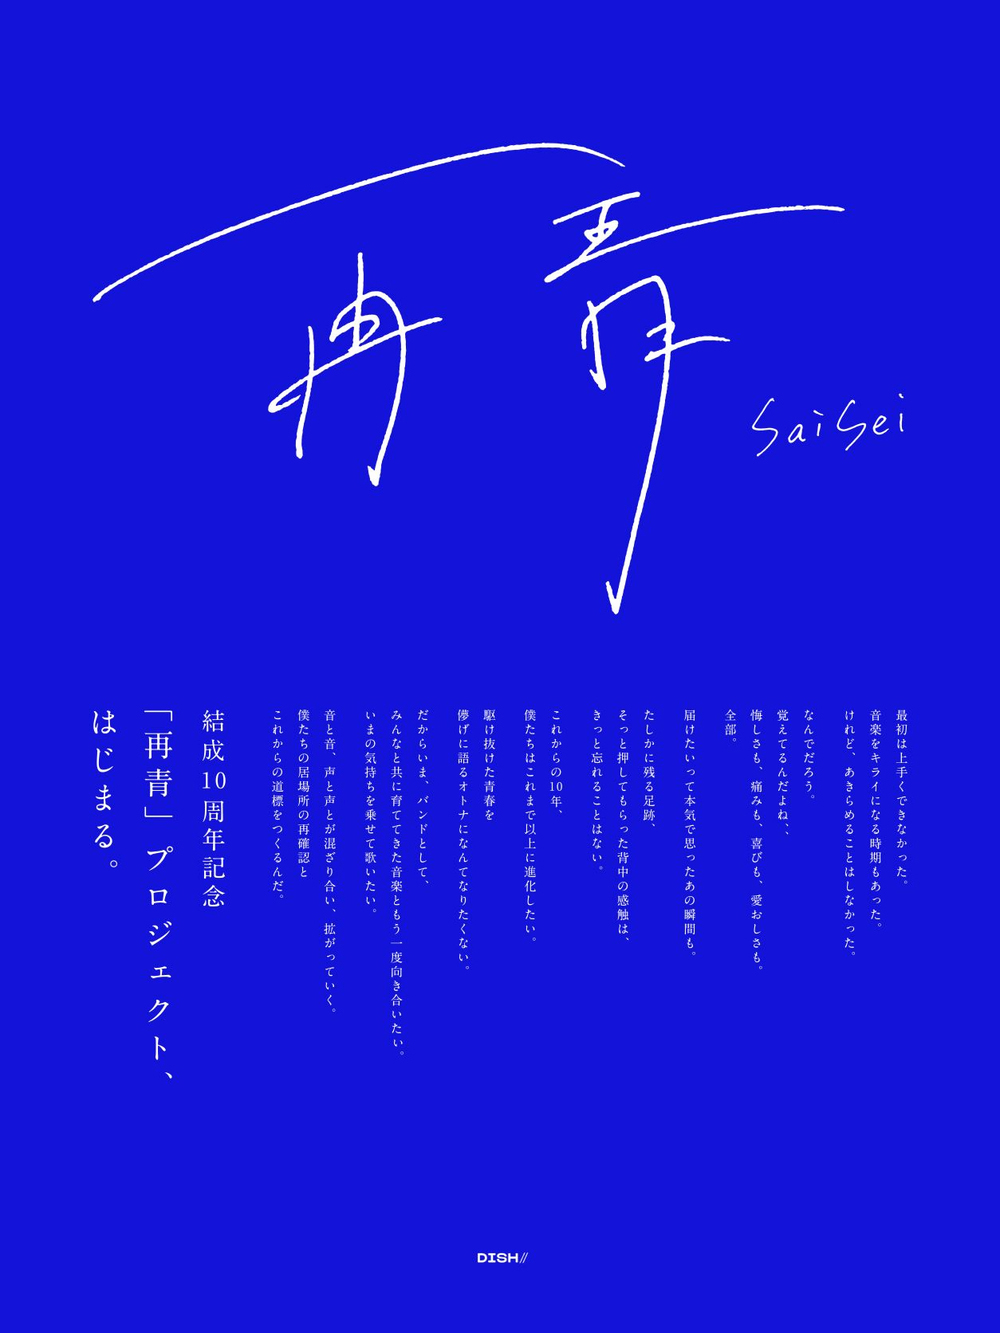 再青
saisei
最初は上手くできなかった。
音楽をキライになる時期もあった。
けれど、あきらめることはしなかった。
なんでだろう。
覚えてるんだよね、、
悔しさも、痛みも、喜びも、愛おしさも。
全部。
届けたいって本気で思ったあの瞬間も。
たしかに残る足跡、
そっと押してもらった背中の感触は、
きっと忘れることはない。
これからの10年、
僕たちはこれまで以上に進化したい。
駆け抜けた青春を
儚げに語るオトナになんてなりたくない。
だからいま、バンドとして、
みんなと共に育ててきた音楽ともう一度向き合いたい。
いまの気持ちを乗せて歌いたい。
音と音、声と声とが混ざり合い、拡がっていく。
僕たちの居場所の再確認と
これからの道標をつくるんだ。
結成10周年記念
「再青」プロジェクト、
はじまる。
DISH//